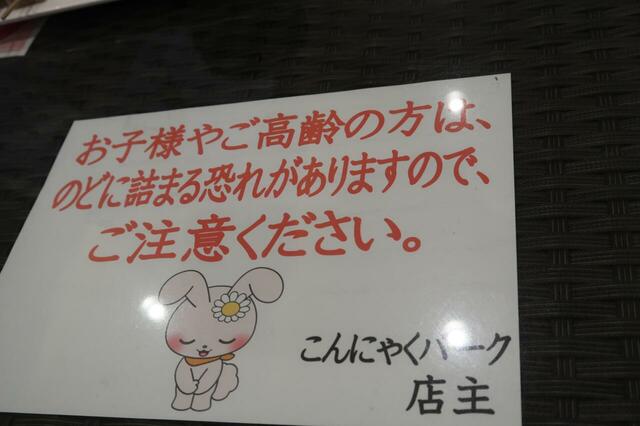 お子様やご高齢の方は、
のどに詰まる恐れがありますので、
ご注意ください。
こんにゃくパーク
店主